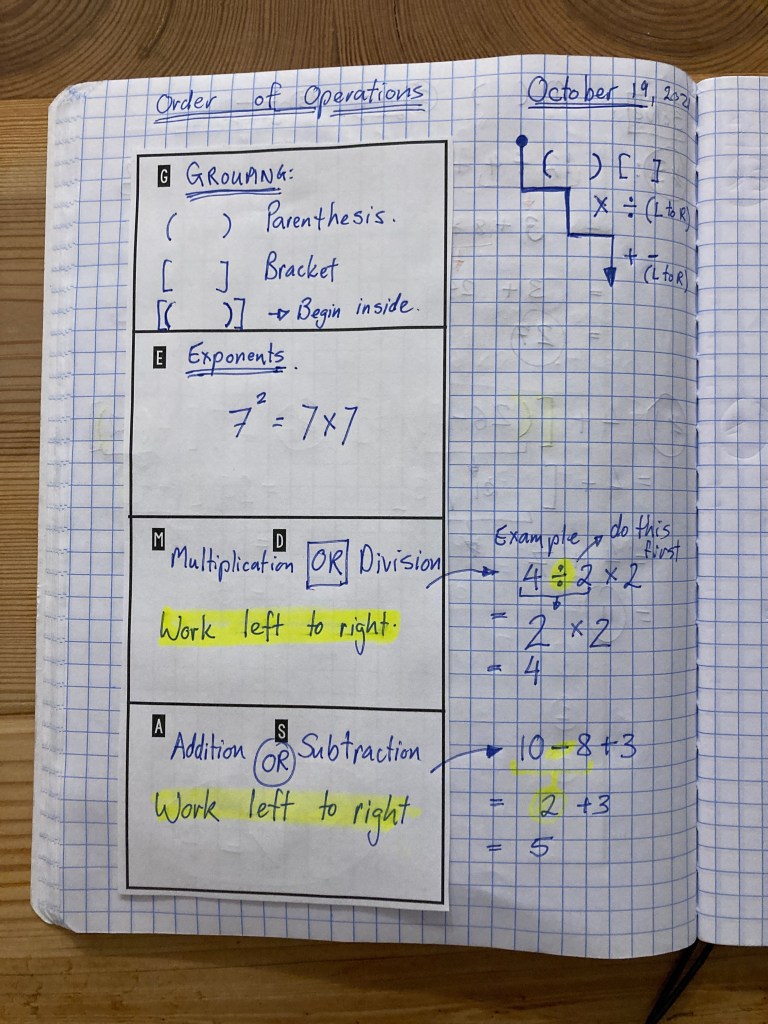 Order of Operations
October 19, 202
G GROUPING:
( ) Parenthesis.
[ ] Bracket
[( )] → Begin inside.
( ) [ ]
× ÷ (L to R)
+ - (L to R)
E Exponents.
7² = 7×7
M D
Multiplication OR Division
Work left to right.
Example → do this first
4 ÷ 2 × 2
= 2 × 2
= 4
A S
Addition OR Subtraction
Work left to right
10 - 8 + 3
= 2 + 3
= 5